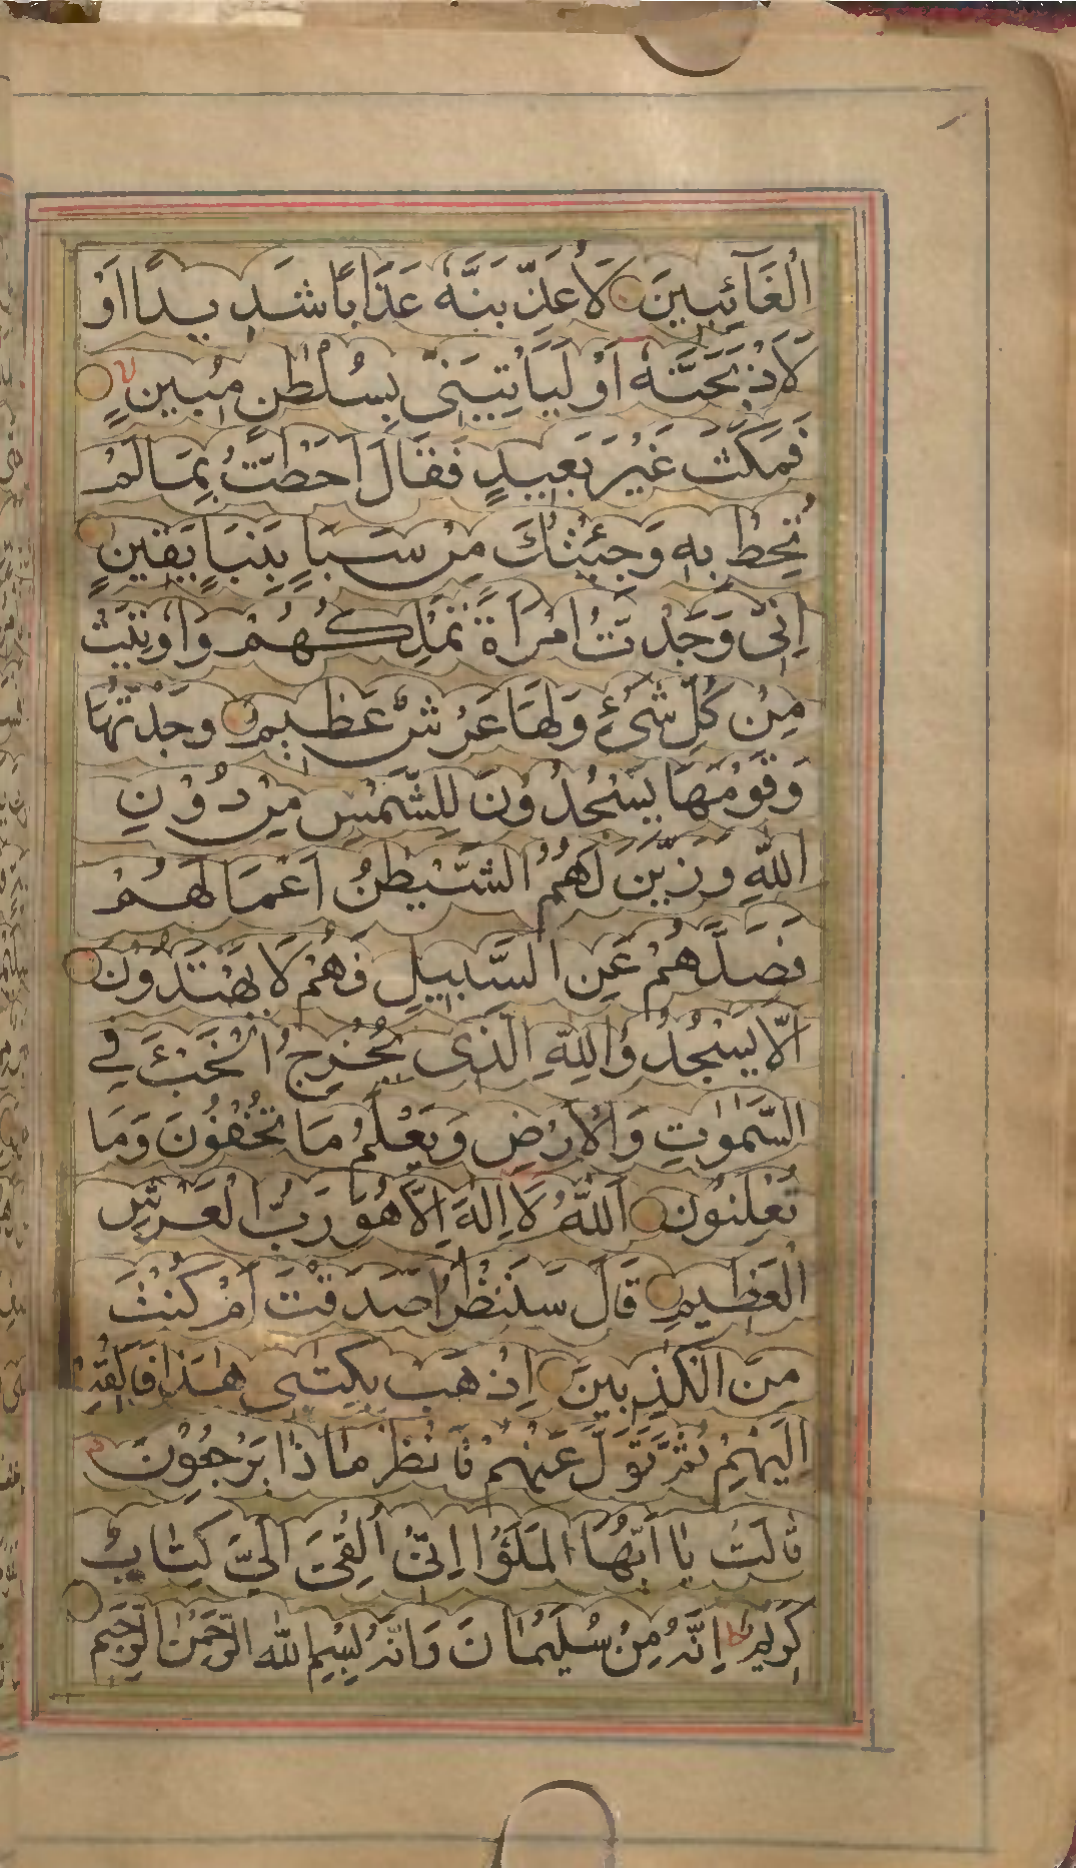 الْغَآئِبِينَ لَأُعَذِّبَنَّهٗ عَذَابًا شَدِيدًا اَوْ
لَاَذْبَحَنَّهٗ اَوْ لَيَاْتِيَنِّى بِسُلْطٰنٍ مُبِينٍ
فَمَكَثَ غَيْرَ بَعِيدٍ فَقَالَ اَحَطْتُ بِمَا لَمْ
تُحِطْ بِهٖ وَجِئْتُكَ مِنْ سَبَاٍ بِنَبَاٍ يَقِينٍ
اِنِّىْ وَجَدْتُ امْرَاَةً تَمْلِكُهُمْ وَاُوتِيَتْ
مِنْ كُلِّ شَىْءٍ وَلَهَا عَرْشٌ عَظِيمٌ وَجَدْتُهَا
وَقَوْمَهَا يَسْجُدُونَ لِلشَّمْسِ مِنْ دُوْنِ
اللّٰهِ وَزَيَّنَ لَهُمُ الشَّيْطٰنُ اَعْمَالَهُمْ
فَصَدَّهُمْ عَنِ السَّبِيلِ فَهُمْ لَا يَهْتَدُوْنَ
اَلَّا يَسْجُدُوْا لِلّٰهِ الَّذِى يُخْرِجُ الْخَبْءَ فِى
السَّمٰوٰتِ وَالْاَرْضِ وَيَعْلَمُ مَا تُخْفُوْنَ وَمَا
تُعْلِنُوْنَ اَللّٰهُ لَا اِلٰهَ اِلَّا هُوَ رَبُّ الْعَرْشِ
الْعَظِيمِ قَالَ سَنَنْظُرُ اَصَدَقْتَ اَمْ كُنْتَ
مِنَ الْكٰذِبِينَ اِذْهَبْ بِكِتٰبِى هٰذَا فَاَلْقِهْ
اِلَيْهِمْ ثُمَّ تَوَلَّ عَنْهُمْ فَانْظُرْ مَاذَا يَرْجِعُوْنَ
قَالَتْ يَا اَيُّهَا الْمَلَؤُا اِنِّىْ اُلْقِىَ اِلَىَّ كِتَابٌ
كَرِيمٌ اِنَّهٗ مِنْ سُلَيْمَانَ وَاِنَّهٗ بِسْمِ اللّٰهِ الرَّحْمٰنِ الرَّحِيمِ